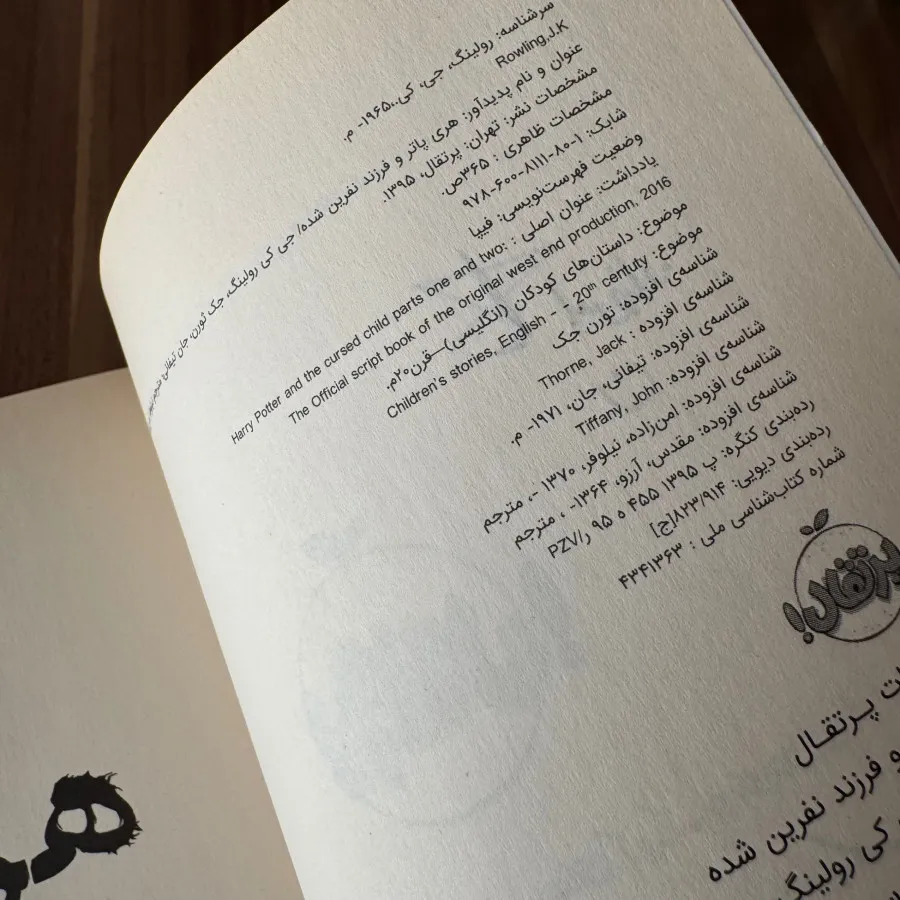 سرشناسه: رولینگ، جی، کی.،۱۹۶۵- م.
Rowling,J.K
عنوان و نام پدیدآور: هری پاتر و فرزند نفرین شده/ جی کی رولینگ، جک ثورن، جان تیفانی
مشخصات نشر: تهران: پرتقال، ۱۳۹۵.
مشخصات ظاهری : ۳۶۵ص.
شابک: ۱-۸۰-۸۱۱۱-۶۰۰-۹۷۸
وضعیت فهرست‌نویسی: فیپا
یادداشت: عنوان اصلی : Harry Potter and the cursed child parts one and two:
The Official script book of the original west end production, 2016
موضوع: داستان‌های کودکان (انگلیسی)—قرن۲۰م.
موضوع: Children's stories, English - - 20th centuty
شناسه‌ی افزوده: تورن جک
شناسه‌ی افزوده : Thorne, Jack
شناسه‌ی افزوده: تیفانی، جان، ۱۹۷۱- م.
شناسه‌ی افزوده: Tiffany, John
شناسه‌ی افزوده: امن‌زاده، نیلوفر، ۱۳۷۰ -، مترجم
شناسه‌ی افزوده: مقدس، آرزو، ۱۳۶۴- ، مترجم
رده‌بندی کنگره: پ ۱۳۹۵ ۴۵۵ ه ۹۵ ر/PZV
رده‌بندی دیویی: ۸۲۳/۹۱۴[ج]
شماره کتاب‌شناسی ملی : ۴۳۴۱۳۶۳
پرتقال!
پرتقال
و فرزند نفرین شده
کی رولینگ